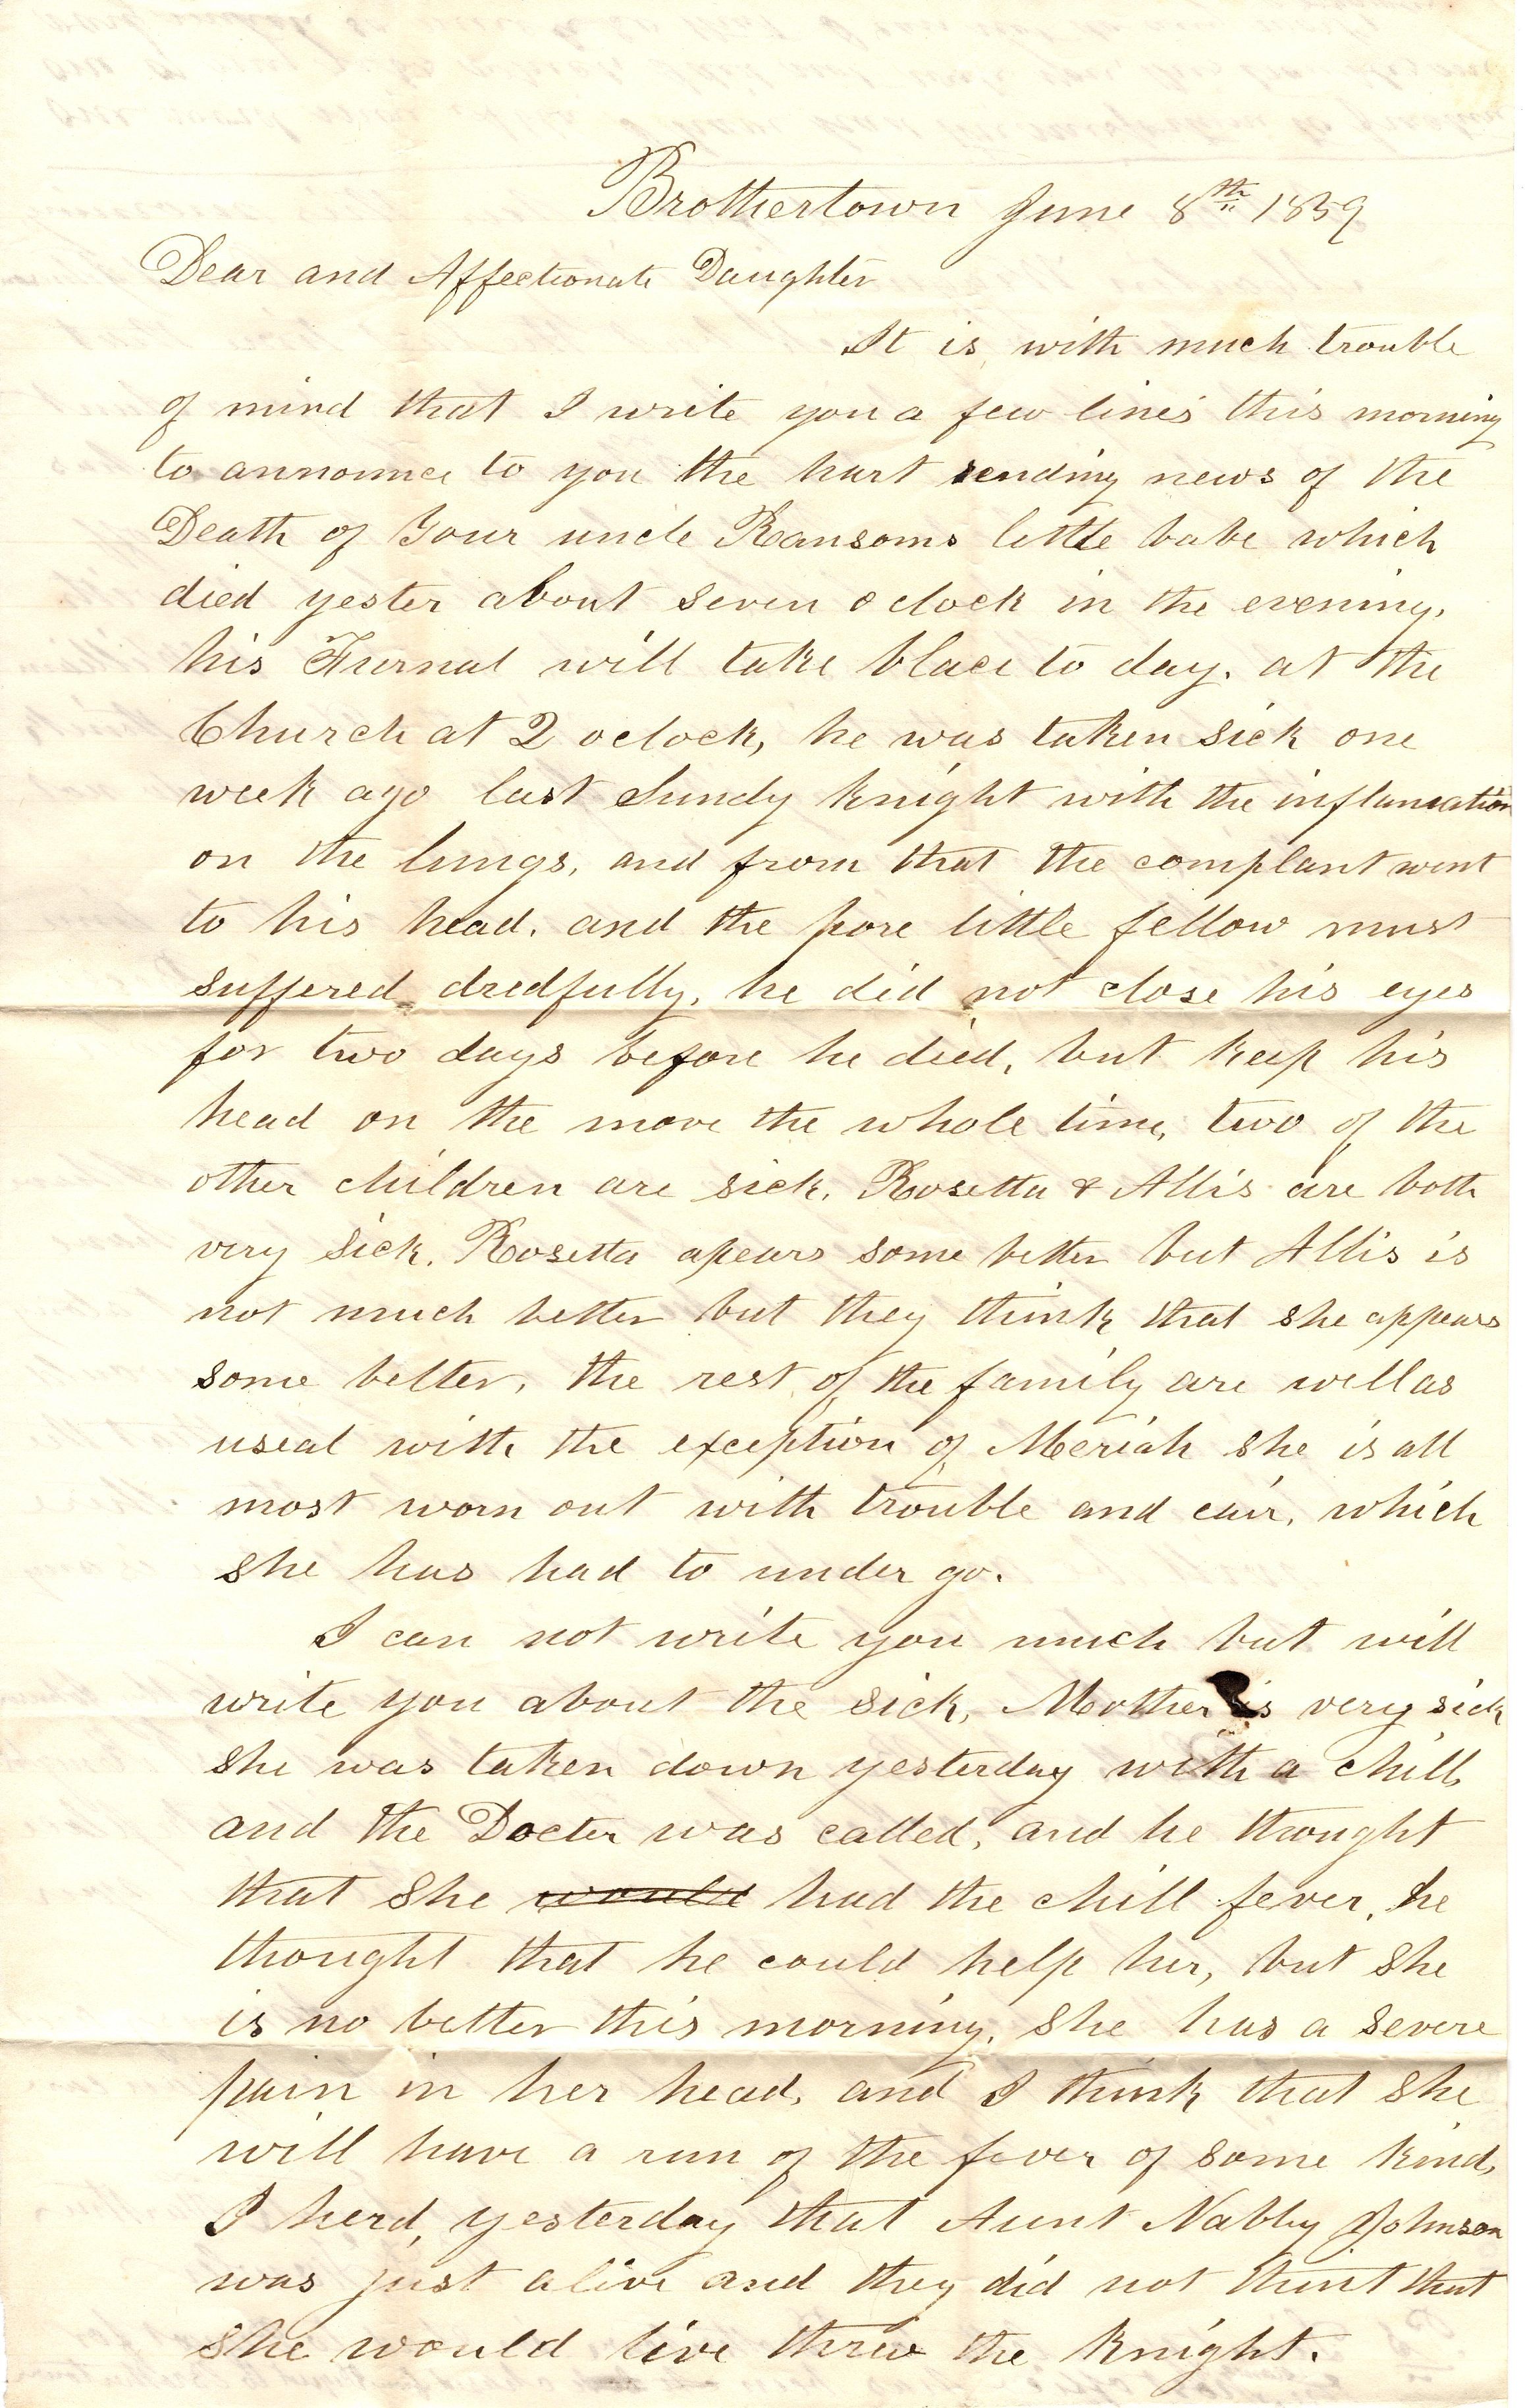 Brothertown June 8th 1859
Dear and Affectionate Daughter
It is with much trouble
of mind that I write you a few lines this morning
to announce to you the hart rending news of the
Death of Your uncle Ransoms little babe which
died yester about seven oclock in the evening,
his Furnal will take place to day. at the
Church at 2 oclock, he was taken sick one
week ago last Sundy knight with the inflamation
on the lungs, and from that the complant went
to his head. and the pore little fellow must
suffered dredfully, he did not close his eyes
for two days before he died, but keep his
head on the move the whole time, two of the
other children are sick. Rosetta & Allis are both
very sick. Rosetta apears some better but Allis is
not much better but they think that she appears
some better, the rest of the family are well as
useal with the exception of Meriah she is all
most worn out with trouble and cair, which
she has had to under go.
I can not write you much but will
write you about the sick, Mother is very sick
she was taken down yesterday with a chill,
and the Docter was called, and he thought
that she would had the chill fever, he
thought that he could help her, but she
is no better this morning. she has a severe
pain in her head, and I think that she
will have a run of the fever of some kind,
I herd, yesterday that Aunt Nabby Johnson
was just alive and they did not thint that
she would live threw the knight.